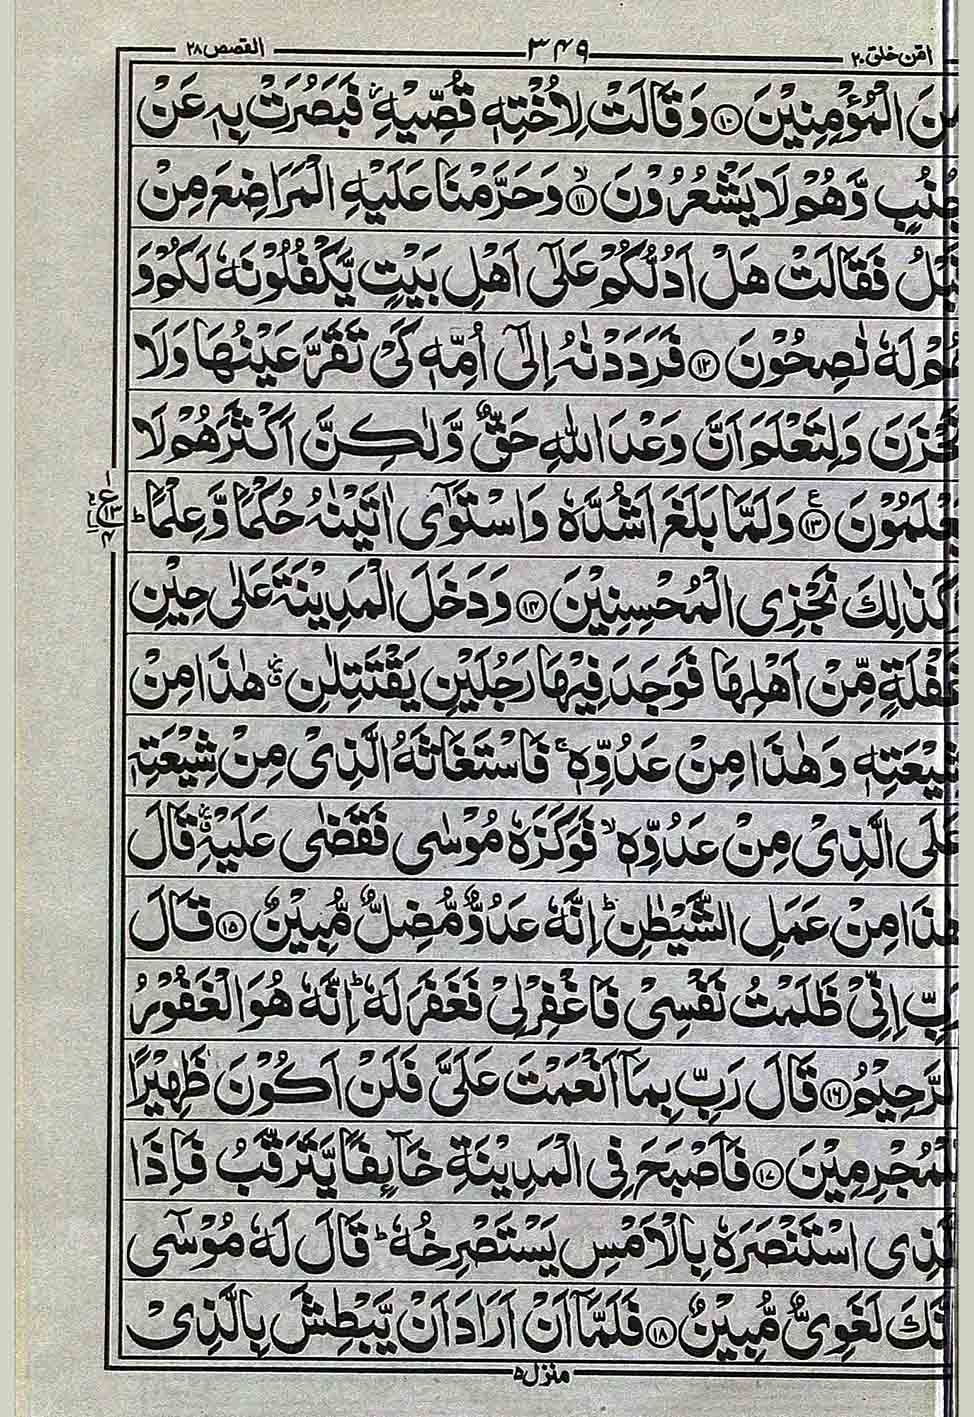 امن خلق ٢٠ ٣٤٩ القصص ٢٨
الْمُؤْمِنِيْنَ ⑩ وَقَالَتْ لِاُخْتِهٖ قُصِّيْهِ ز فَبَصُرَتْ بِهٖ عَنْ
جُنُبٍ وَّهُمْ لَا يَشْعُرُوْنَ ۙ⑪ وَحَرَّمْنَا عَلَيْهِ الْمَرَاضِعَ مِنْ
قَبْلُ فَقَالَتْ هَلْ اَدُلُّكُمْ عَلٰۤى اَهْلِ بَيْتٍ يَّكْفُلُوْنَهٗ لَكُمْ وَ
هُمْ لَهٗ نٰصِحُوْنَ ⑫ فَرَدَدْنٰهُ اِلٰۤى اُمِّهٖ كَىْ تَقَرَّ عَيْنُهَا وَلَا
تَحْزَنَ وَلِتَعْلَمَ اَنَّ وَعْدَ اللّٰهِ حَقٌّ وَّلٰكِنَّ اَكْثَرَهُمْ لَا
يَعْلَمُوْنَ ع⑬ وَلَمَّا بَلَغَ اَشُدَّهٗ وَاسْتَوٰۤى اٰتَيْنٰهُ حُكْمًا وَّعِلْمًا ؕ
كَذٰلِكَ نَجْزِى الْمُحْسِنِيْنَ ⑭ وَدَخَلَ الْمَدِيْنَةَ عَلٰى حِيْنِ
غَفْلَةٍ مِّنْ اَهْلِهَا فَوَجَدَ فِيْهَا رَجُلَيْنِ يَقْتَتِلٰنِ هٰذَا مِنْ
شِيْعَتِهٖ وَهٰذَا مِنْ عَدُوِّهٖ ۚ فَاسْتَغَاثَهُ الَّذِىْ مِنْ شِيْعَتِهٖ
عَلَى الَّذِىْ مِنْ عَدُوِّهٖ ۙ فَوَكَزَهٗ مُوْسٰى فَقَضٰى عَلَيْهِ قَالَ
هٰذَا مِنْ عَمَلِ الشَّيْطٰنِ ؕ اِنَّهٗ عَدُوٌّ مُّضِلٌّ مُّبِيْنٌ ⑮ قَالَ
رَبِّ اِنِّىْ ظَلَمْتُ نَفْسِىْ فَاغْفِرْ لِىْ فَغَفَرَ لَهٗ ؕ اِنَّهٗ هُوَ الْغَفُوْرُ
الرَّحِيْمُ ⑯ قَالَ رَبِّ بِمَاۤ اَنْعَمْتَ عَلَىَّ فَلَنْ اَكُوْنَ ظَهِيْرًا
لِّلْمُجْرِمِيْنَ ⑰ فَاَصْبَحَ فِى الْمَدِيْنَةِ خَآئِفًا يَّتَرَقَّبُ فَاِذَا
الَّذِى اسْتَنْصَرَهٗ بِالْاَمْسِ يَسْتَصْرِخُهٗ ؕ قَالَ لَهٗ مُوْسٰۤى
اِنَّكَ لَغَوِىٌّ مُّبِيْنٌ ⑱ فَلَمَّاۤ اَنْ اَرَادَ اَنْ يَّبْطِشَ بِالَّذِىْ
منزل ٥